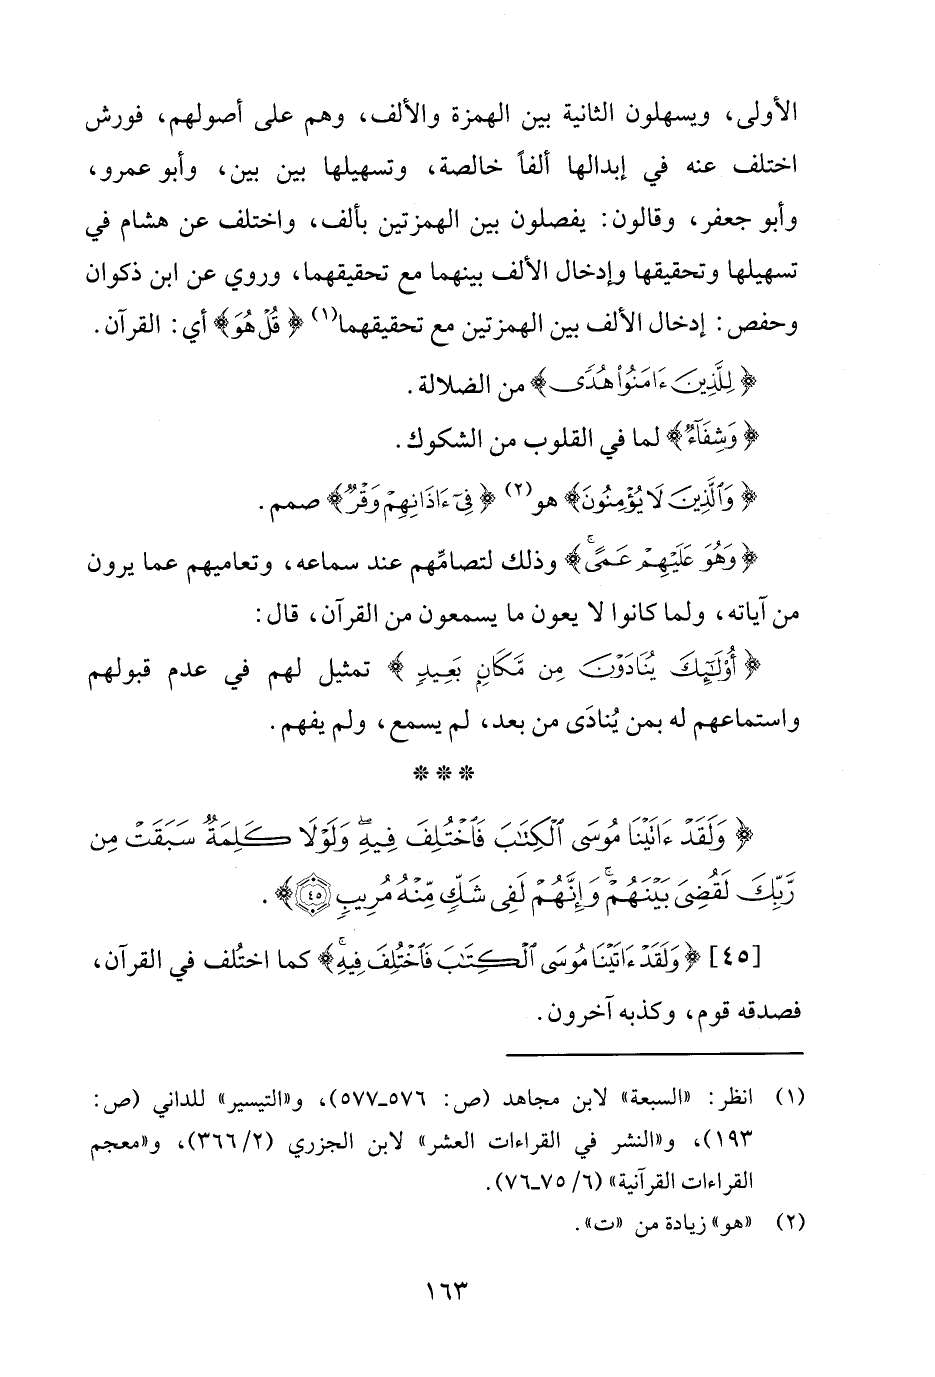 الأولى، ويسهلون الثانية بين الهمزة والألف، وهم على أصولهم، فورش
اختلف عنه في إبدالها ألفاً خالصة، وتسهيلها بين بين، وأبو عمرو،
وأبو جعفر، وقالون: يفصلون بين الهمزتين بألف، واختلف عن هشام في
تسهيلها وتحقيقها وإدخال الألف بينهما مع تحقيقهما، وروي عن ابن ذكوان
وحفص: إدخال الألف بين الهمزتين مع تحقيقهما(١) ﴿قُلْ هُوَ﴾ أي: القرآن.
﴿لِلَّذِينَ ءَامَنُواْ هُدًى﴾ من الضلالة.
﴿وَشِفَآءٌ﴾ لما في القلوب من الشكوك.
﴿وَٱلَّذِينَ لَا يُؤْمِنُونَ﴾ هو(٢) ﴿فِىٓ ءَاذَانِهِمْ وَقْرٌ﴾ صمم.
﴿وَهُوَ عَلَيْهِمْ عَمًىۚ﴾ وذلك لتصامِّهم عند سماعه، وتعاميهم عما يرون
من آياته، ولما كانوا لا يعون ما يسمعون من القرآن، قال:
﴿أُوْلَٰٓئِكَ يُنَادَوْنَ مِن مَّكَانٍ بَعِيدٍ﴾ تمثيل لهم في عدم قبولهم
واستماعهم له بمن يُنادَى من بعد، لم يسمع، ولم يفهم.
***
﴿وَلَقَدْ ءَاتَيْنَا مُوسَى ٱلْكِتَٰبَ فَٱخْتُلِفَ فِيهِۗ وَلَوْلَا كَلِمَةٌ سَبَقَتْ مِن
رَّبِّكَ لَقُضِىَ بَيْنَهُمْۚ وَإِنَّهُمْ لَفِى شَكٍّ مِّنْهُ مُرِيبٍ ٤٥﴾.
[٤٥] ﴿وَلَقَدْ ءَاتَيْنَا مُوسَى ٱلْكِتَٰبَ فَٱخْتُلِفَ فِيهِۚ﴾ كما اختُلف في القرآن،
فصدقه قوم، وكذبه آخرون.
(١) انظر: «السبعة» لابن مجاهد (ص: ٥٧٦_٥٧٧)، و«التيسير» للداني (ص:
١٩٣)، و«النشر في القراءات العشر» لابن الجزري (٢/ ٣٦٦)، و«معجم
القراءات القرآنية» (٦/ ٧٥_٧٦).
(٢) «هو» زيادة من «ت».
١٦٣